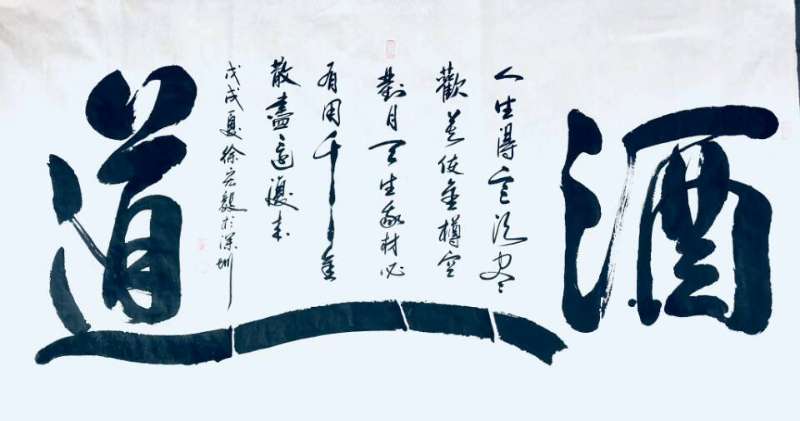 酒道
人生得意须尽
歡莫使金樽空
對月天生我材必
有用千金
散盡還復来
戊戌夏徐宏毅於深圳